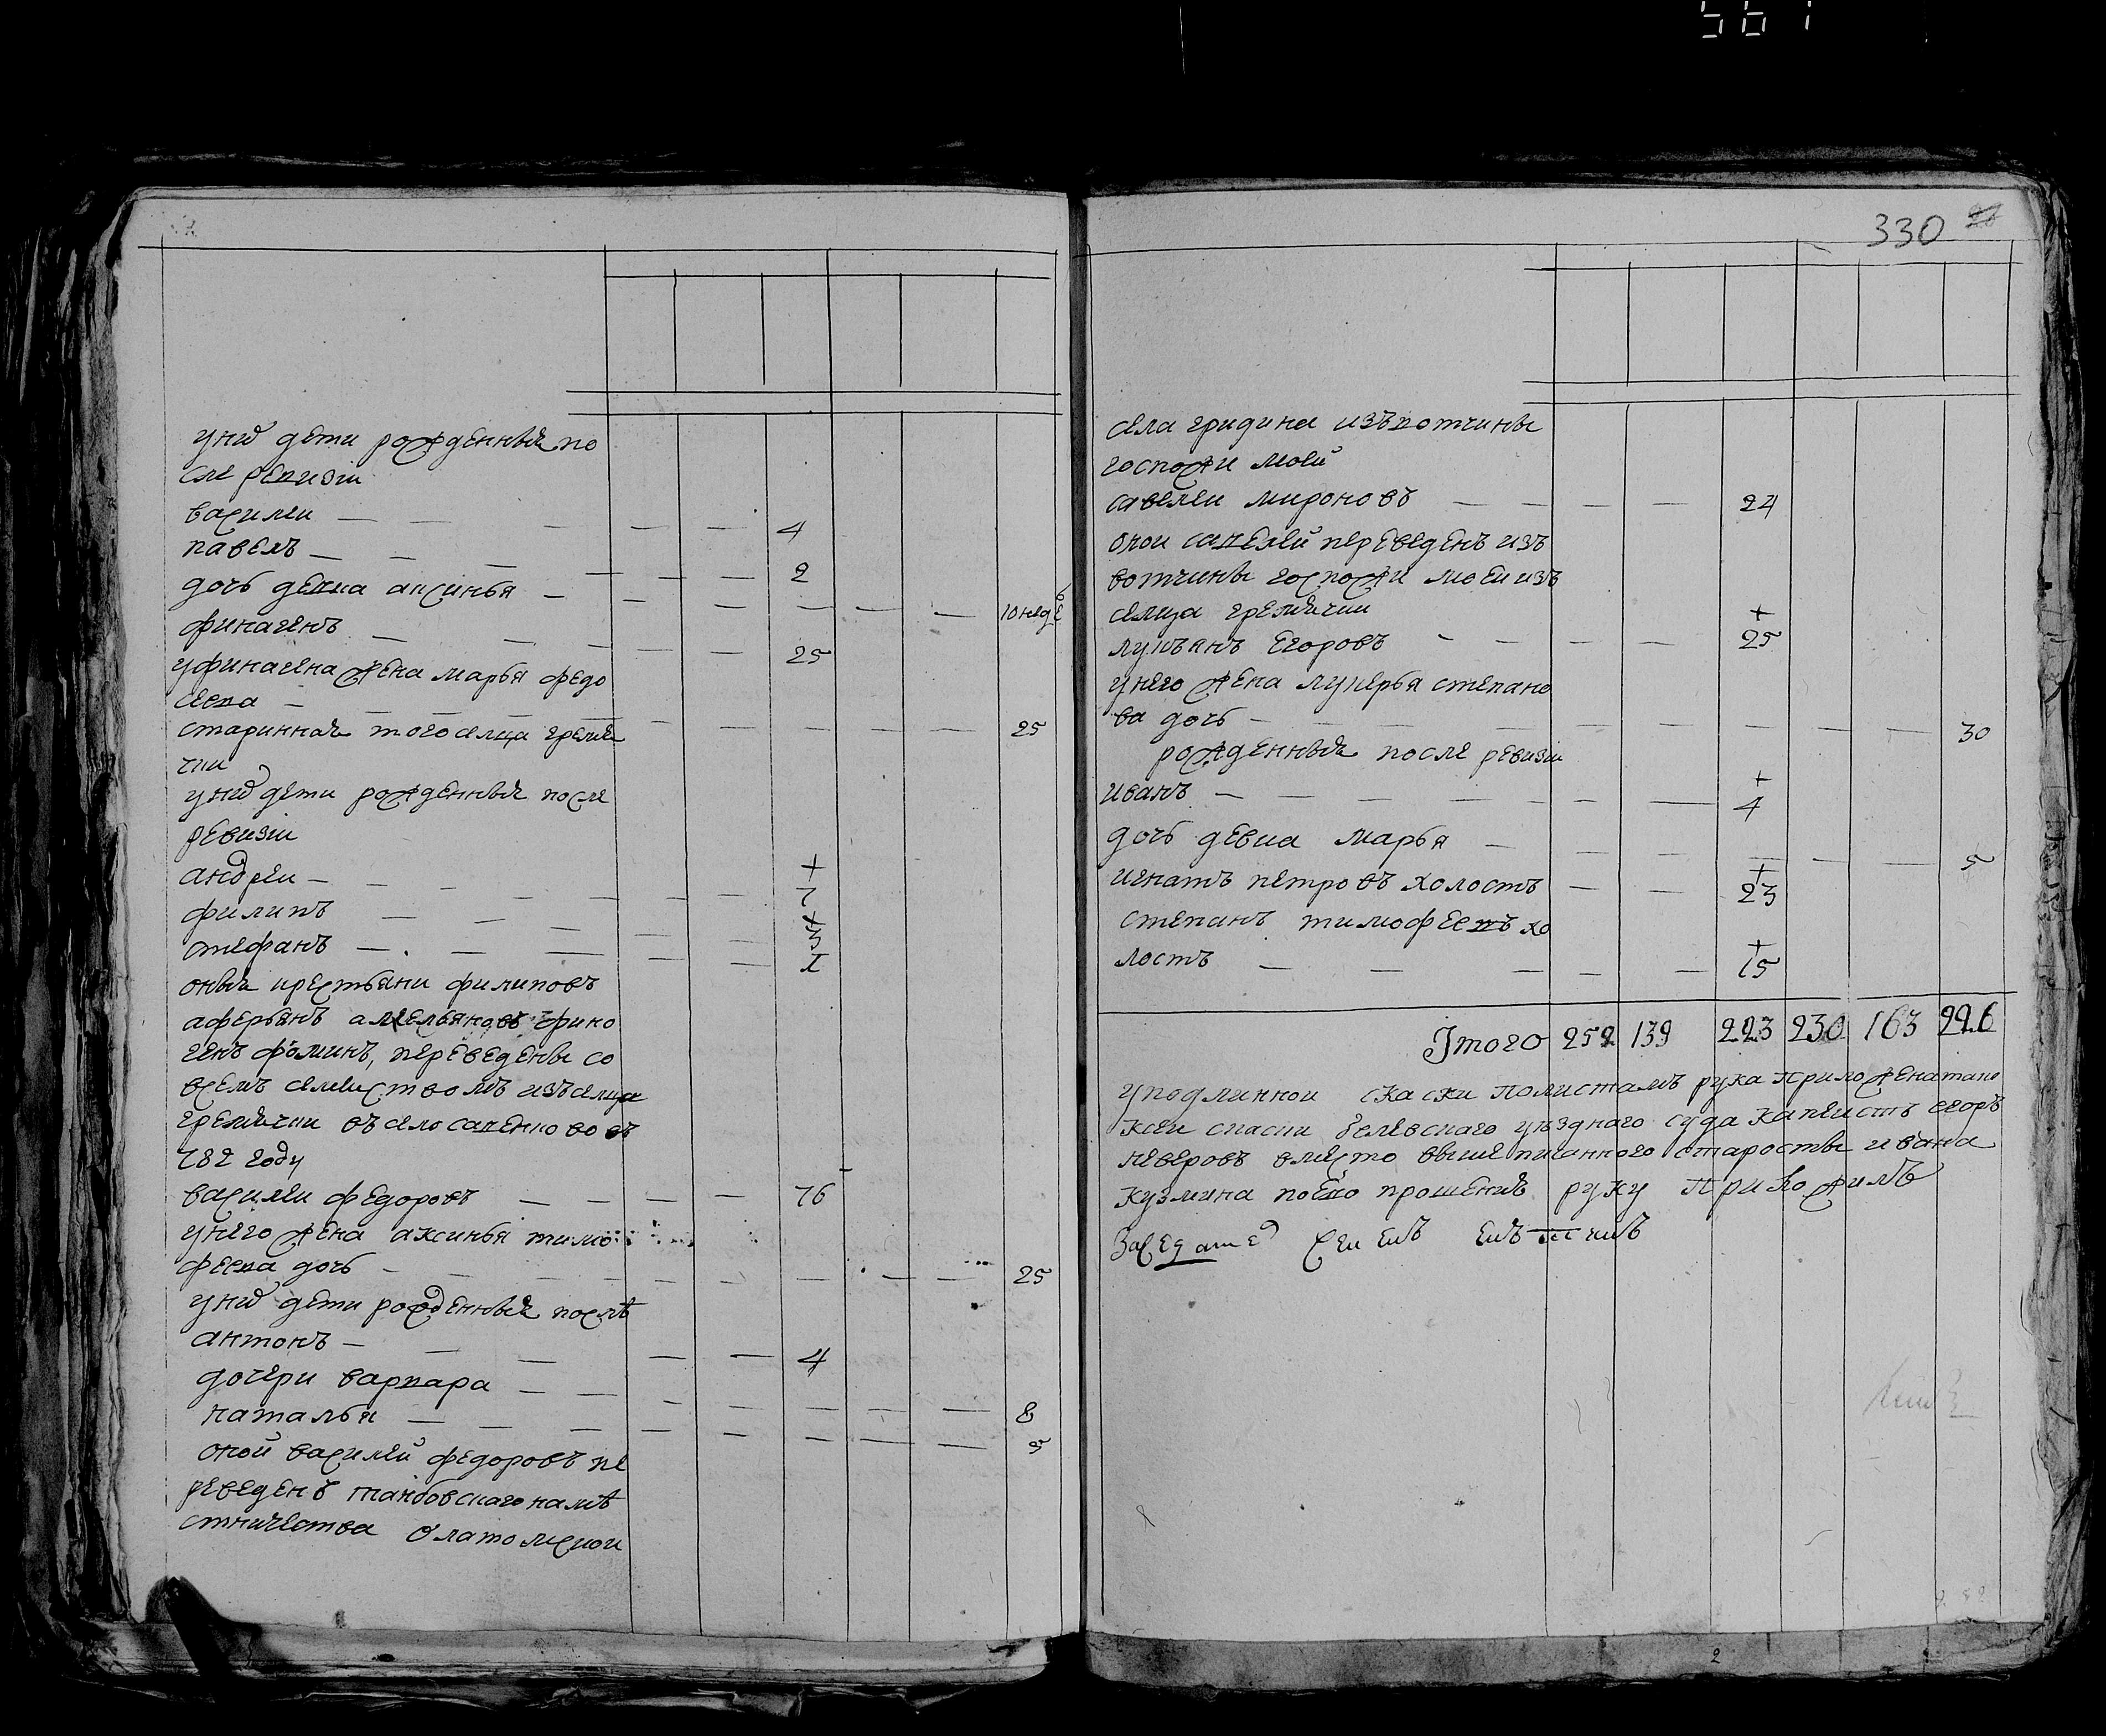 561
330
унихъ дети рожденныя по
сле ревизiи
василеи — — — — — 4
павелъ — — — — — 2
дочь девка аксинья — — — — — — 10 неде
финагенъ — — — — — 25
у финагена жена марья федо
сеева — — — — — — 25
стариннаѧ того селца гремя
чки
унихъ дети рожденныя после
ревизiи
андреи — — — — — + 7
филипъ — — — — — + 3
стефанъ — — — — — + 1
оныя крестьяни филиповъ
аферьянъ амельяновъ фино
генъ фоминъ, переведены со
всемъ семействомъ изъ селца
гремячки въ село савенково въ
782 году
василеи федоровъ — — — — 76
унего жена аксинья тимо
феева дочь — — — — — — 25
унихъ дети рожденныя послѣ
антонъ — — — — — 4
дочери варвара — — — — — — 8
наталья — — — — — — 5
оной василей федоровъ пе
реведенъ танбовскаго намѣ
стничества
села гридина изъ вотчины
госпожи моей
савелеи мироновъ — — — — 24
оной савелей переведенъ изъ
вотчины госпожи моеи изъ
селца гремячки
лукьянъ егоровъ — — — — + 25
унего жена лукерья степано
ва дочь — — — — — — 30
рожденныя после ревизiи
иванъ — — — — — + 4
дочь девка марья — — — — — — 5
игнатъ петровъ холостъ — — + 23
степанъ тимофеевъ хо
лостъ — — — — — + 15
Iтого 252 139 223 230 163 226
у подлиннои скаски полистамъ рука приложена тако
жеи списки белевскаго уѣзднаго суда капеистъ егоръ
неверовъ вместо вышеписанного старосты ивана
кузмина поево прошению руку приложилъ
2